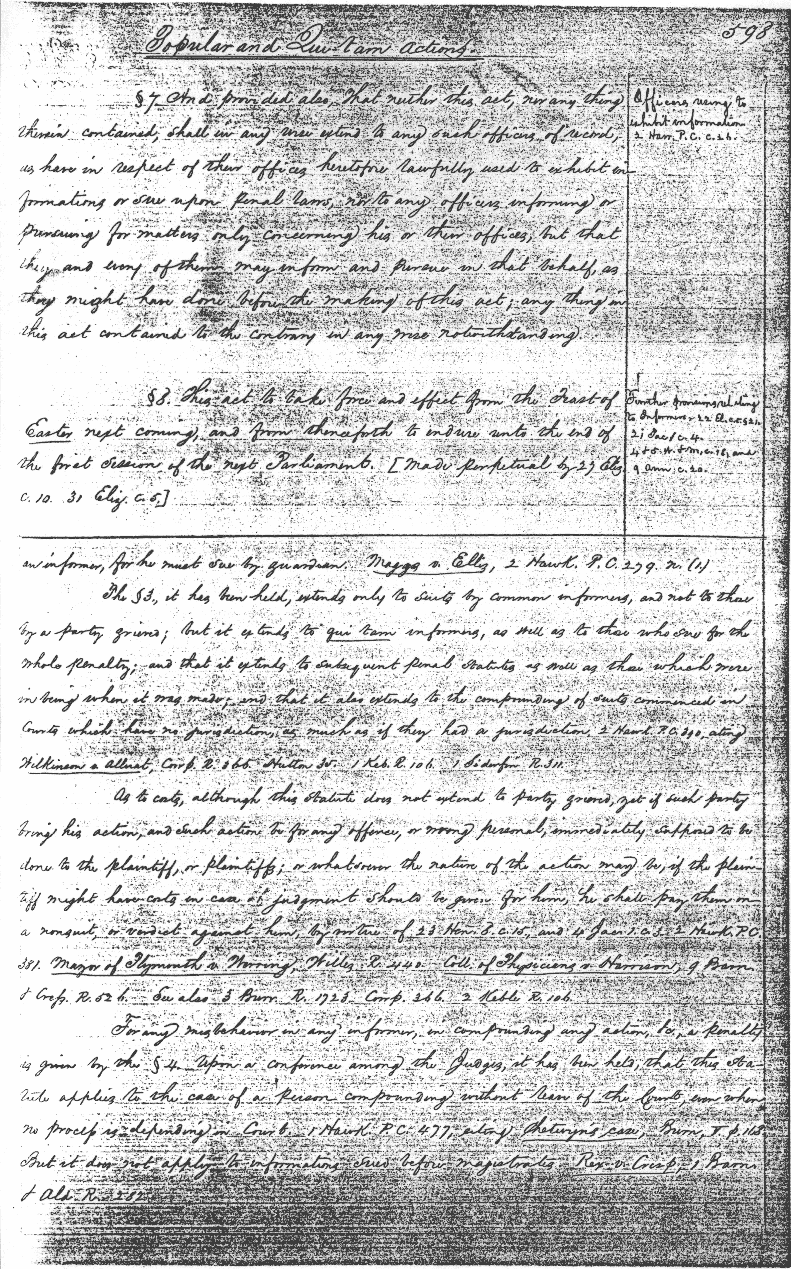 598
Popular and Qui-tam actions.
§7. And provided also, That neither this act, nor any thing
therein contained, shall in any wise extend to any such officers of record,
as have in respect of their offices heretofore lawfully used to exhibit in-
formations or sue upon penal laws, nor to any officers informing or
pursuing for matters only concerning his or their offices, but that
they and every of them may inform and pursue in that behalf, as
they might have done before the making of this act; any thing in
this act contained to the contrary in any wise notwithstanding.
Officers using to
exhibit information
2 Haw. P.C. c. 26.
§8. This act to take force and effect from the Feast of
Easter next coming, and from thenceforth to endure unto the end of
the first Session of the next Parliament. [Made perpetual by 27 Eliz.
c. 10. 31 Eliz. c. 5.]
Further provisions relating
to Informers
21 Jac. 1 c. 4.
4 & 5 W. & M. c. 18, and
9 Ann. c. 20.
an informer, for he must sue by guardian. Maggs v. Ells, 2 Hawk. P.C. 279. n. (1)
The §3., it has been held, extends only to suits by common informers, and not to those
by a party grieved; but it extends to qui tam informers, as well as to those who sue for the
whole penalty; and that it extends to subsequent penal statutes as well as those which were
in being when it was made; and that it also extends to the compounding of suits commenced in
Courts which have no jurisdiction, as much as if they had a jurisdiction, 2 Hawk. P.C. 390, citing
Wilkinson a Hutton 35. 1 Keb. R. 106. 1 Siderfin R. 311.
As to costs, although this Statute does not extend to party grieved, yet if such party
bring his action, and such action be for any offence, or wrong personal, immediately supposed to be
done to the plaintiff, or plaintiffs; or whatsoever the nature of the action may be, if the plain-
tiff might have costs in case of judgment should be given for him, he shall pay them on
a nonsuit, or verdict against him, by virtue of 23 Hen. 8. c. 15, and 4 Jac. 1. c. 3. 2 Hawk. P.C.
381. Mayor of Plymouth v. Werring, Willes R. 440. Coll. of Physicians v. Harrison, 9 Barn.
& Cresp. R. 526. See also 3 Burr. R. 1723. Cowp. 366. 2 Keble R. 106.
For any misbehavior in any informer, in compounding any action, &c, a penalty
is given by the §4. Upon a conference among the Judges, it has been held, that this sta-
tute applies to the case of a person compounding without leave of the Court, even when
no process is depending in Court. 1 Hawk. P.C. 477, citing Chetwyns case, Burn, V. p. 168.
But it does not apply to informations sued before magistrates. Rex v. Crisp, 1 Barn.
& Ald. R.